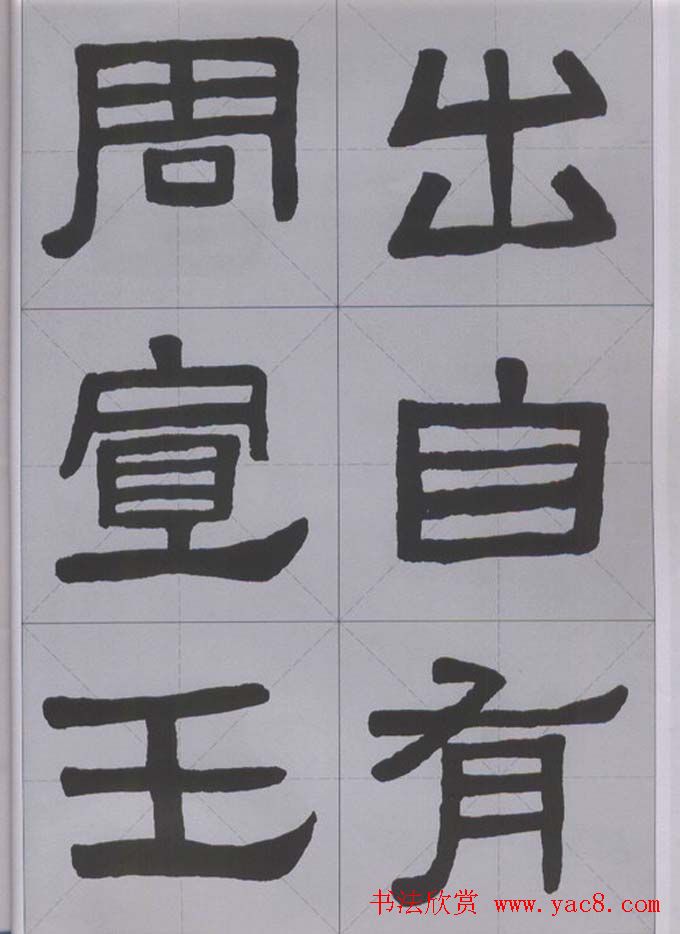 出自有
周宣王
书法欣赏 www.yac8.com